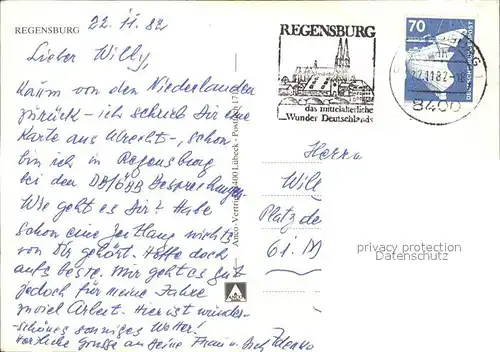 REGENSBURG
22.11.82
Lieber Willy,
Kaum von den Niederlanden
zurück - ich schrieb Dir eine
Karte aus Utrecht -, schon
bin ich in Regensburg
bei den DB/ÖBB Besprechungen.
Wie geht es Dir? Habe
schon eine Zeitlang nichts
von Dir gehört. Hoffe doch
aufs beste. Mir geht es gut
jedoch für meine Jahre
zuviel Arbeit. Hier ist wunder-
schönes sonniges Wetter!
Herzliche Grüsse an Deine Frau u. Dich
REGENSBURG
das mittelalterliche
Wunder Deutschlands
70
DEUTSCHE BUNDESPOST
22.11.82
8400
Lübeck
Herrn
Platz de
61.
privacy protection
Personendatenschutz